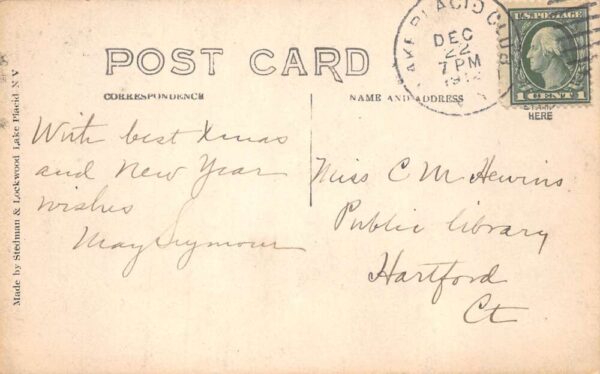 POST CARD
CORRESPONDENCE
NAME AND ADDRESS
LAKE PLACID CLUB
DEC
22
7 PM
U.S. POSTAGE
1 CENT 1
HERE
With best Xmas
and New Year
wishes
May Seymour
Miss C M Hewins
Public library
Hartford
Ct
Made by Stedman & Lockwood Lake Placid N Y